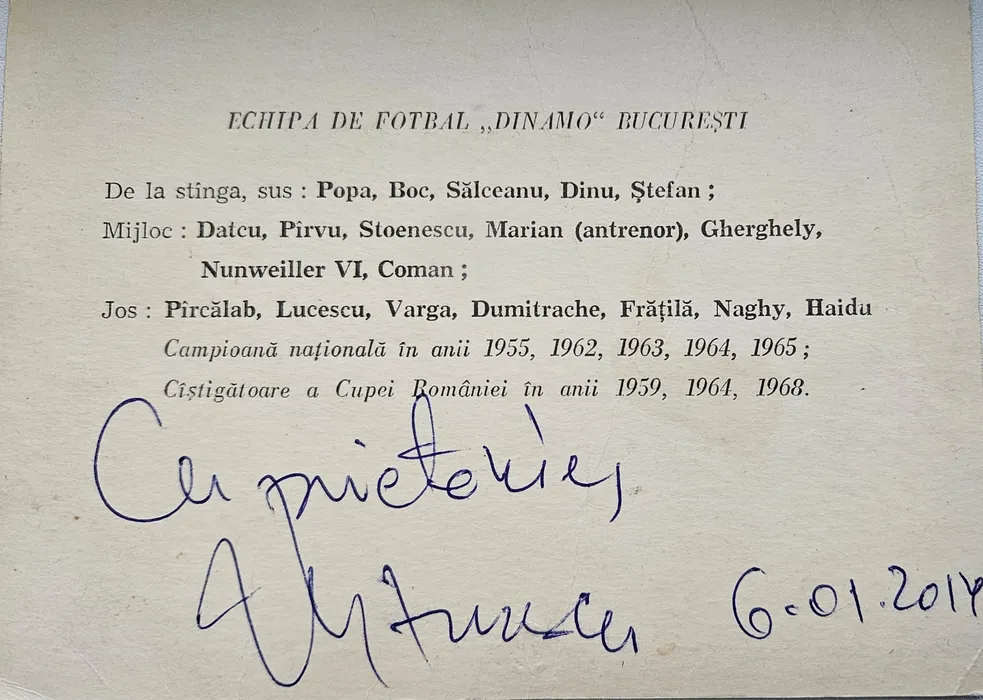 ECHIPA DE FOTBAL „DINAMO“ BUCUREȘTI
De la stînga, sus : Popa, Boc, Sălceanu, Dinu, Ștefan ;
Mijloc : Datcu, Pîrvu, Stoenescu, Marian (antrenor), Gherghely,
Nunweiller VI, Coman ;
Jos : Pîrcălab, Lucescu, Varga, Dumitrache, Frățilă, Naghy, Haidu
Campioană națională în anii 1955, 1962, 1963, 1964, 1965 ;
Cîștigătoare a Cupei României în anii 1959, 1964, 1968.
Cu prietenie,
6.01.2014